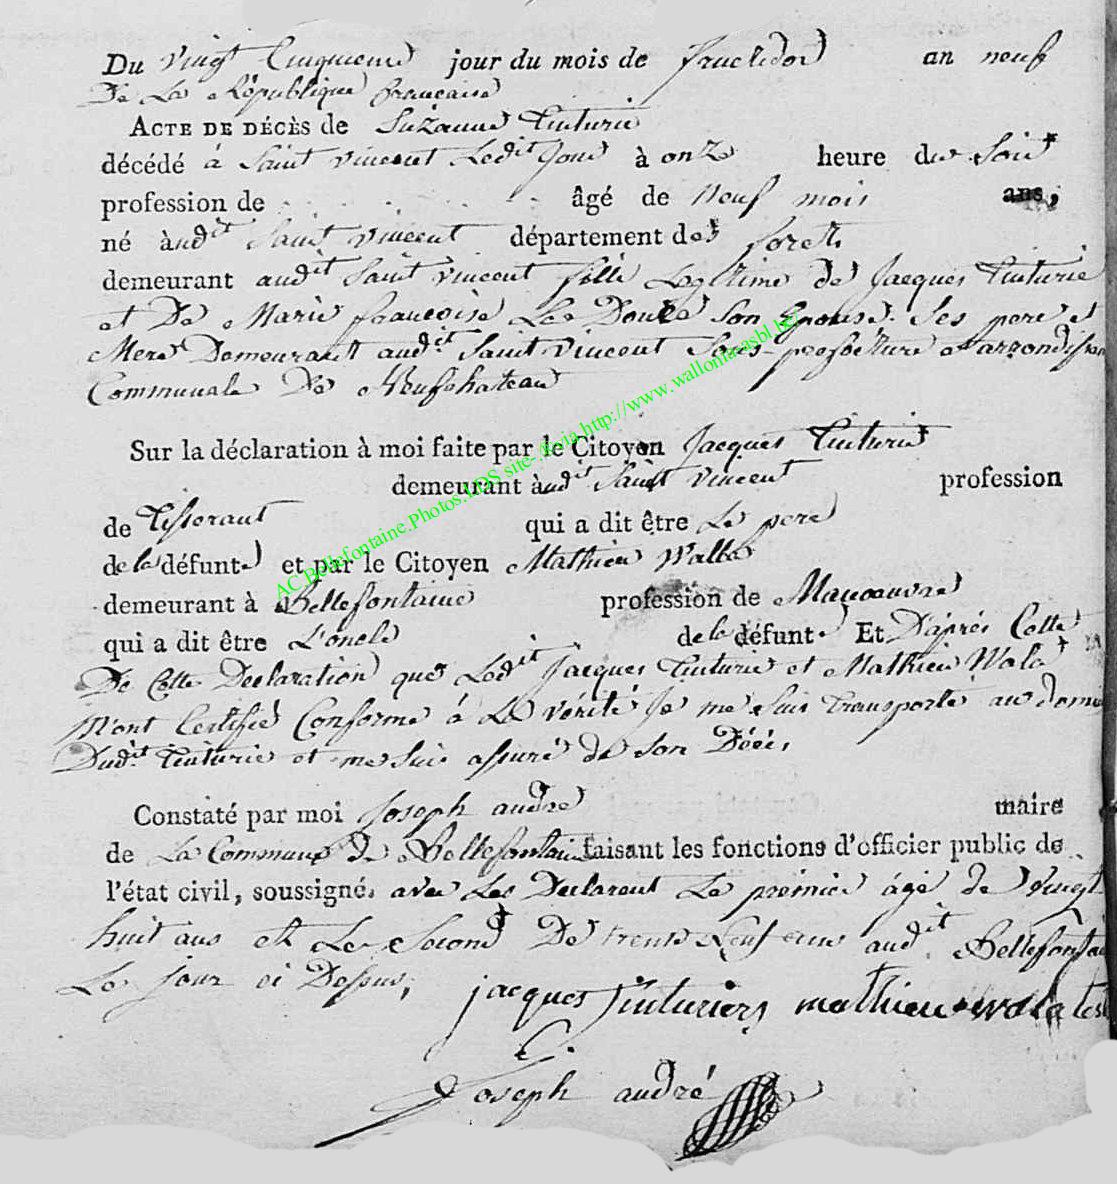 Du vingt Cinquieme jour du mois de fructidor an neuf
De La République francaise
ACTE DE DÉCÈS de Suzanne Tinturie
décédé à Saint vincent Ledit Jour à onze heure du Soir
profession de . . . . . . . âgé de neuf mois ans,
né àudit Saint vincent département des forets
demeurant audit Saint vincent fille Legitime de Jacques Tinturie
et De Marie francoise Le Douce Son Epouse. Ses pere et
Mere Demeurant audit Saint vincent Sous prefecture
Communale De Neufchateau
Sur la déclaration à moi faite par le Citoyen Jacques Tinturie
demeurant àudit Saint vincent profession
de Tisserant qui a dit être Le pere
de la défunte et par le Citoyen Mathieu Walla
demeurant à Bellefontaine profession de Manoeuvre
qui a dit être L'oncle de la défunte Et D'après Cette
De Cette Declaration que Ledit Jacques Tinturie et Mathieu Wala
M'ont Certifié Conforme à La vérité Je me Suis transporté au
Dudit Tinturie et me Suis assuré de Son Décés,
Constaté par moi Joseph andré maire
de La Commune de Bellefontaine faisant les fonctions d'officier public de
l'état civil, soussigné, avec Les Declarent Le premier agé de vingt
huit ans et Le Second De trente neuf ans audit Bellefontai
Le jour ci Dessus,
jacques Tinturiers mathieu wala
Joseph andré
AC.Bellefontaine.Photos.LDS site-.fr via http://www.wallonia-asbl.be